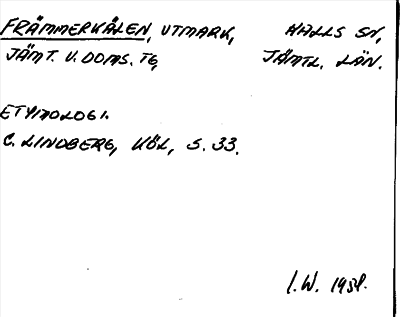 FRÄMMERKÅLEN, UTMARK, HALLS SN,
JÄMT. V. DOMS. TG, JÄMTL. LÄN.
ETYMOLOGI.
C. LINDBERG, KÖL, S. 33.
I. W. 1951.